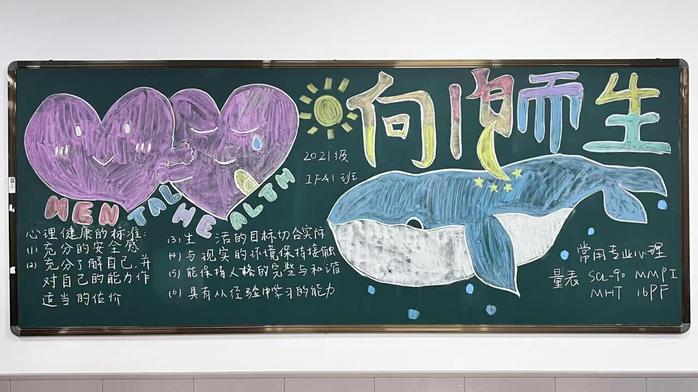 向阳而生
2021级
IFA1班
MENTAL HEALTH
心理健康的标准:
(1) 充分的安全感
(2) 充分了解自己,并
对自己的能力作
适当的估价
(3) 生 活的目标切合实际
(4) 与现实的环境保持接触
(5) 能保持人格的完整与和谐
(6) 具有从经验中学习的能力
常用专业心理
量表 SCL-90 MMPI
MHT 16PF